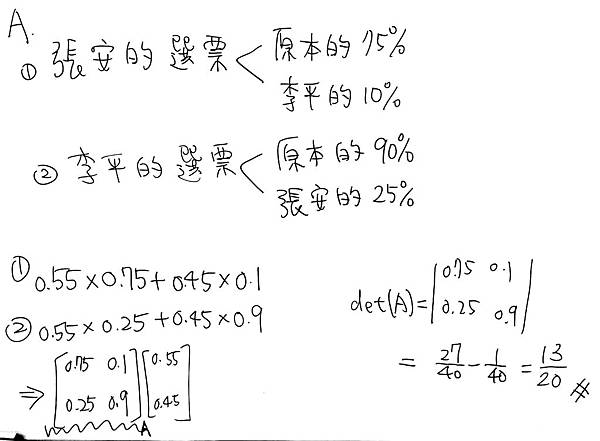 A.
① 張安的選票 < 原本的 75%
李平的 10%
② 李平的選票 < 原本的 90%
張安的 25%
① 0.55×0.75+0.45×0.1
② 0.55×0.25+0.45×0.9
⇒ [0.75 0.1] [0.55]
[0.25 0.9] [0.45]
A
det(A)= |0.75 0.1|
|0.25 0.9|
= 27/40 - 1/40 = 13/20 #